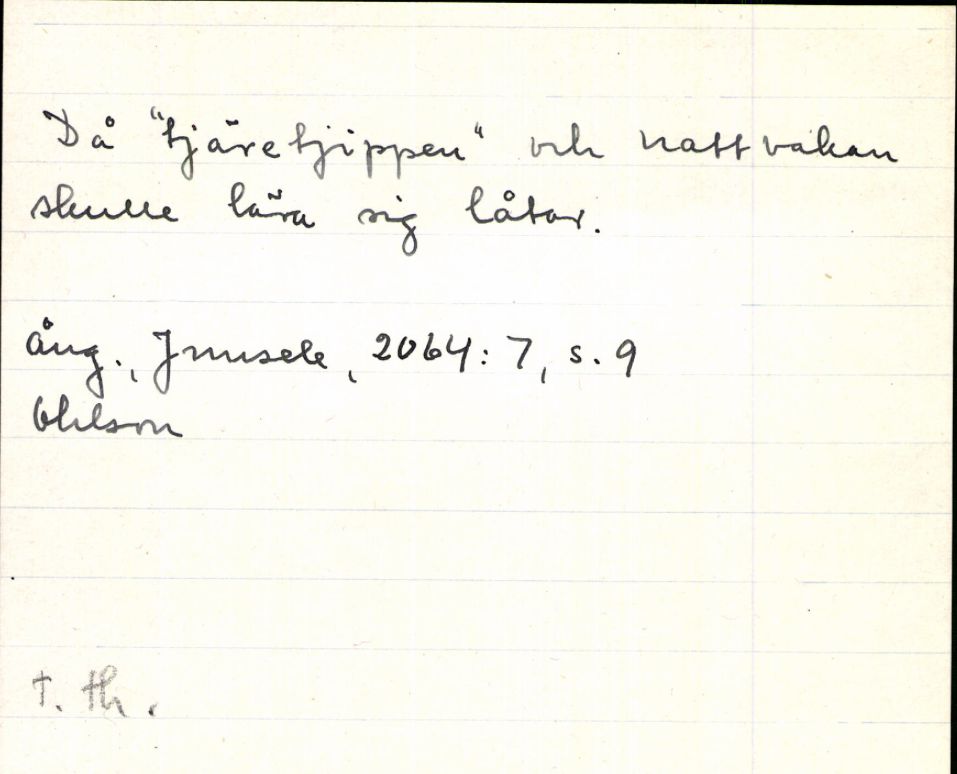 Då "tjäretjippen" och nattvakan
skulle lära sig låtar.
Ång., Junsele, 2064:7, s. 9
Ohlson
T. Th.